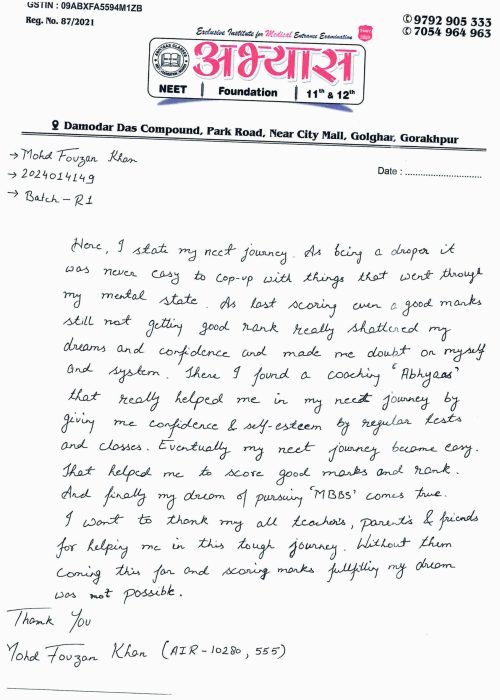 GSTIN : 09ABXFA5594M1ZB
Reg. No. 87/2021
Exclusive Institute for Medical Entrance Examination
9792 905 333
7054 964 963
अभ्यास
NEET | Foundation | 11th & 12th
Damodar Das Compound, Park Road, Near City Mall, Golghar, Gorakhpur
Date : ..............................
→ Mohd Fouzan Khan
→ 2024014149
→ Batch - R1
Here, I state my neet journey. As being a droper it
was never easy to cop-up with things that went through
my mental state. As last scoring even a good marks
still not getting good rank really shattered my
dreams and confidence and made me doubt on myself
and system. There I found a coaching 'Abhyaas'
that really helped me in my neet journey by
giving me confidence & self-esteem by regular tests
and classes. Eventually my neet journey became easy.
That helped me to score good marks and rank.
And finally my dream of pursuing 'MBBS' comes true.
I want to thank my all teachers, parent's & friends
for helping me in this tough journey. Without them
coming this far and scoring marks fullfilling my dream
was not possible.
Thank You
Mohd Fouzan Khan (AIR-10280, 555)